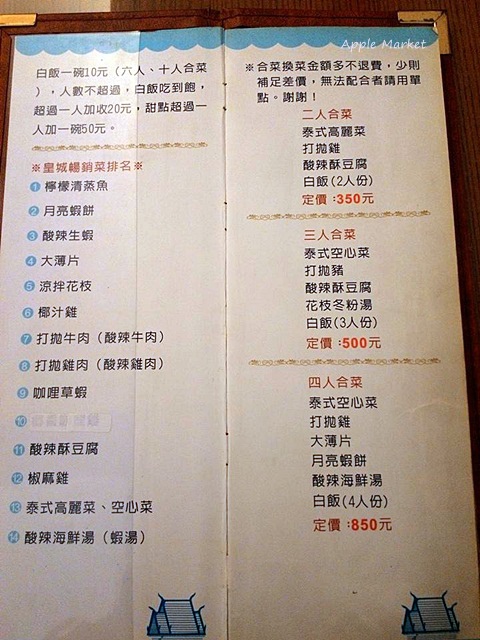 Apple Market
白飯一碗10元（六人、十人合菜
），人數不超過，白飯吃到飽，
超過一人加收20元，甜點超過一
人加一碗50元。
※皇城暢銷菜排名※
1 檸檬清蒸魚
2 月亮蝦餅
3 酸辣生蝦
4 大薄片
5 涼拌花枝
6 椰汁雞
7 打拋牛肉（酸辣牛肉）
8 打拋雞肉（酸辣雞肉）
9 咖哩草蝦
10
11 酸辣酥豆腐
12 椒麻雞
13 泰式高麗菜、空心菜
14 酸辣海鮮湯（蝦湯）
※合菜換菜金額多不退費，少則
補足差價，無法配合者請用單
點。謝謝！
二人合菜
泰式高麗菜
打拋雞
酸辣酥豆腐
白飯(2人份)
定價：350元
三人合菜
泰式空心菜
打拋豬
酸辣酥豆腐
花枝冬粉湯
白飯(3人份)
定價：500元
四人合菜
泰式空心菜
打拋雞
大薄片
月亮蝦餅
酸辣海鮮湯
白飯(4人份)
定價：850元